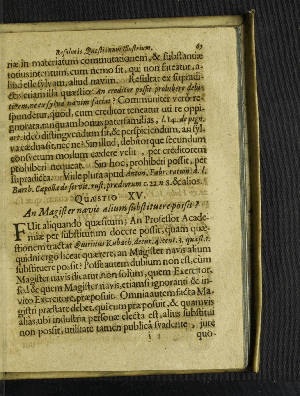 Resolutio Quæstionum illustrium. 67
riæ in materiatum commutationem, & substantiæ
totius interitum, cum nemo sit, qui non fateatur, a-
liud esse sylvam, aliud navim. Resultat ex supradi-
ctis etiam illa quæstio: An creditor possit prohibere debi-
torem, ne ex sylva navim faciat? Communiter vero re-
spondetur, quod, cum creditor teneatur uti re oppi-
gnorata, tanquam bonus paterfamilias,
ideo distinguendum sit, & perspiciendum, an syl-
va cædua sit, nec ne? Si illud, debitor que secundum
consvetum modum cædere velit, per creditorem
prohiberi nequeat. Sin hoc, prohiberi possit, per
supradicta. Vide plura apud Anton. Fabr.
Barth. Capolla de servit. rust. præd. & alios.
QUÆSTIO XV.
An Magister navis alium substituere possit?
FUit aliquando quæsitum: An Professor Acade-
miæ per substitutum docere possit, quam quæ-
stionem tractat Quirinus Kubach,
quid nil ergo liceat quærere, an Magister navis alium
substituere possit? Posse autem dubium non est, cum
Magister navis dicatur, non solum, quem Exercitor,
sed & quem Magister navis, etiamsi ignoranti & in-
vito Exercitore, præposuit. Omnia autem facta Ma-
gistri præstare debet, qui eum præposuit, & quamvis
alias, ubi industria personæ electa est, alius substitui
non possit, utilitate tamen publica svadente, jure
quo-